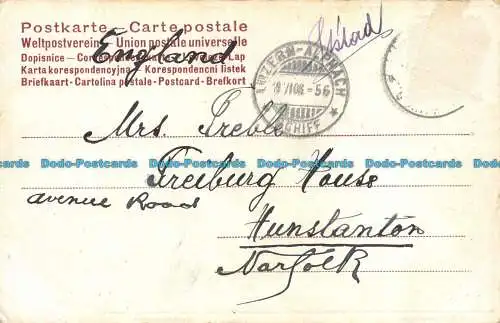 Postkarte - Carte postale
Weltpostverein - Union postale universelle
Dopisnice - Correspondenzkarte - Levelező-Lap
Karta korespondencyjna - Korespondencni listek
Briefkaart - Cartolina postale - Postcard - Brefkort
England
LUZERN-ALPNACH
SCHIFF
Mrs. Preble
Freiburg House
avenue Road
Hunstanton
Norfolk
Dodo-Postcards Dodo-Postcards Dodo-Postcards Dodo-Postcards Dodo-Postcards